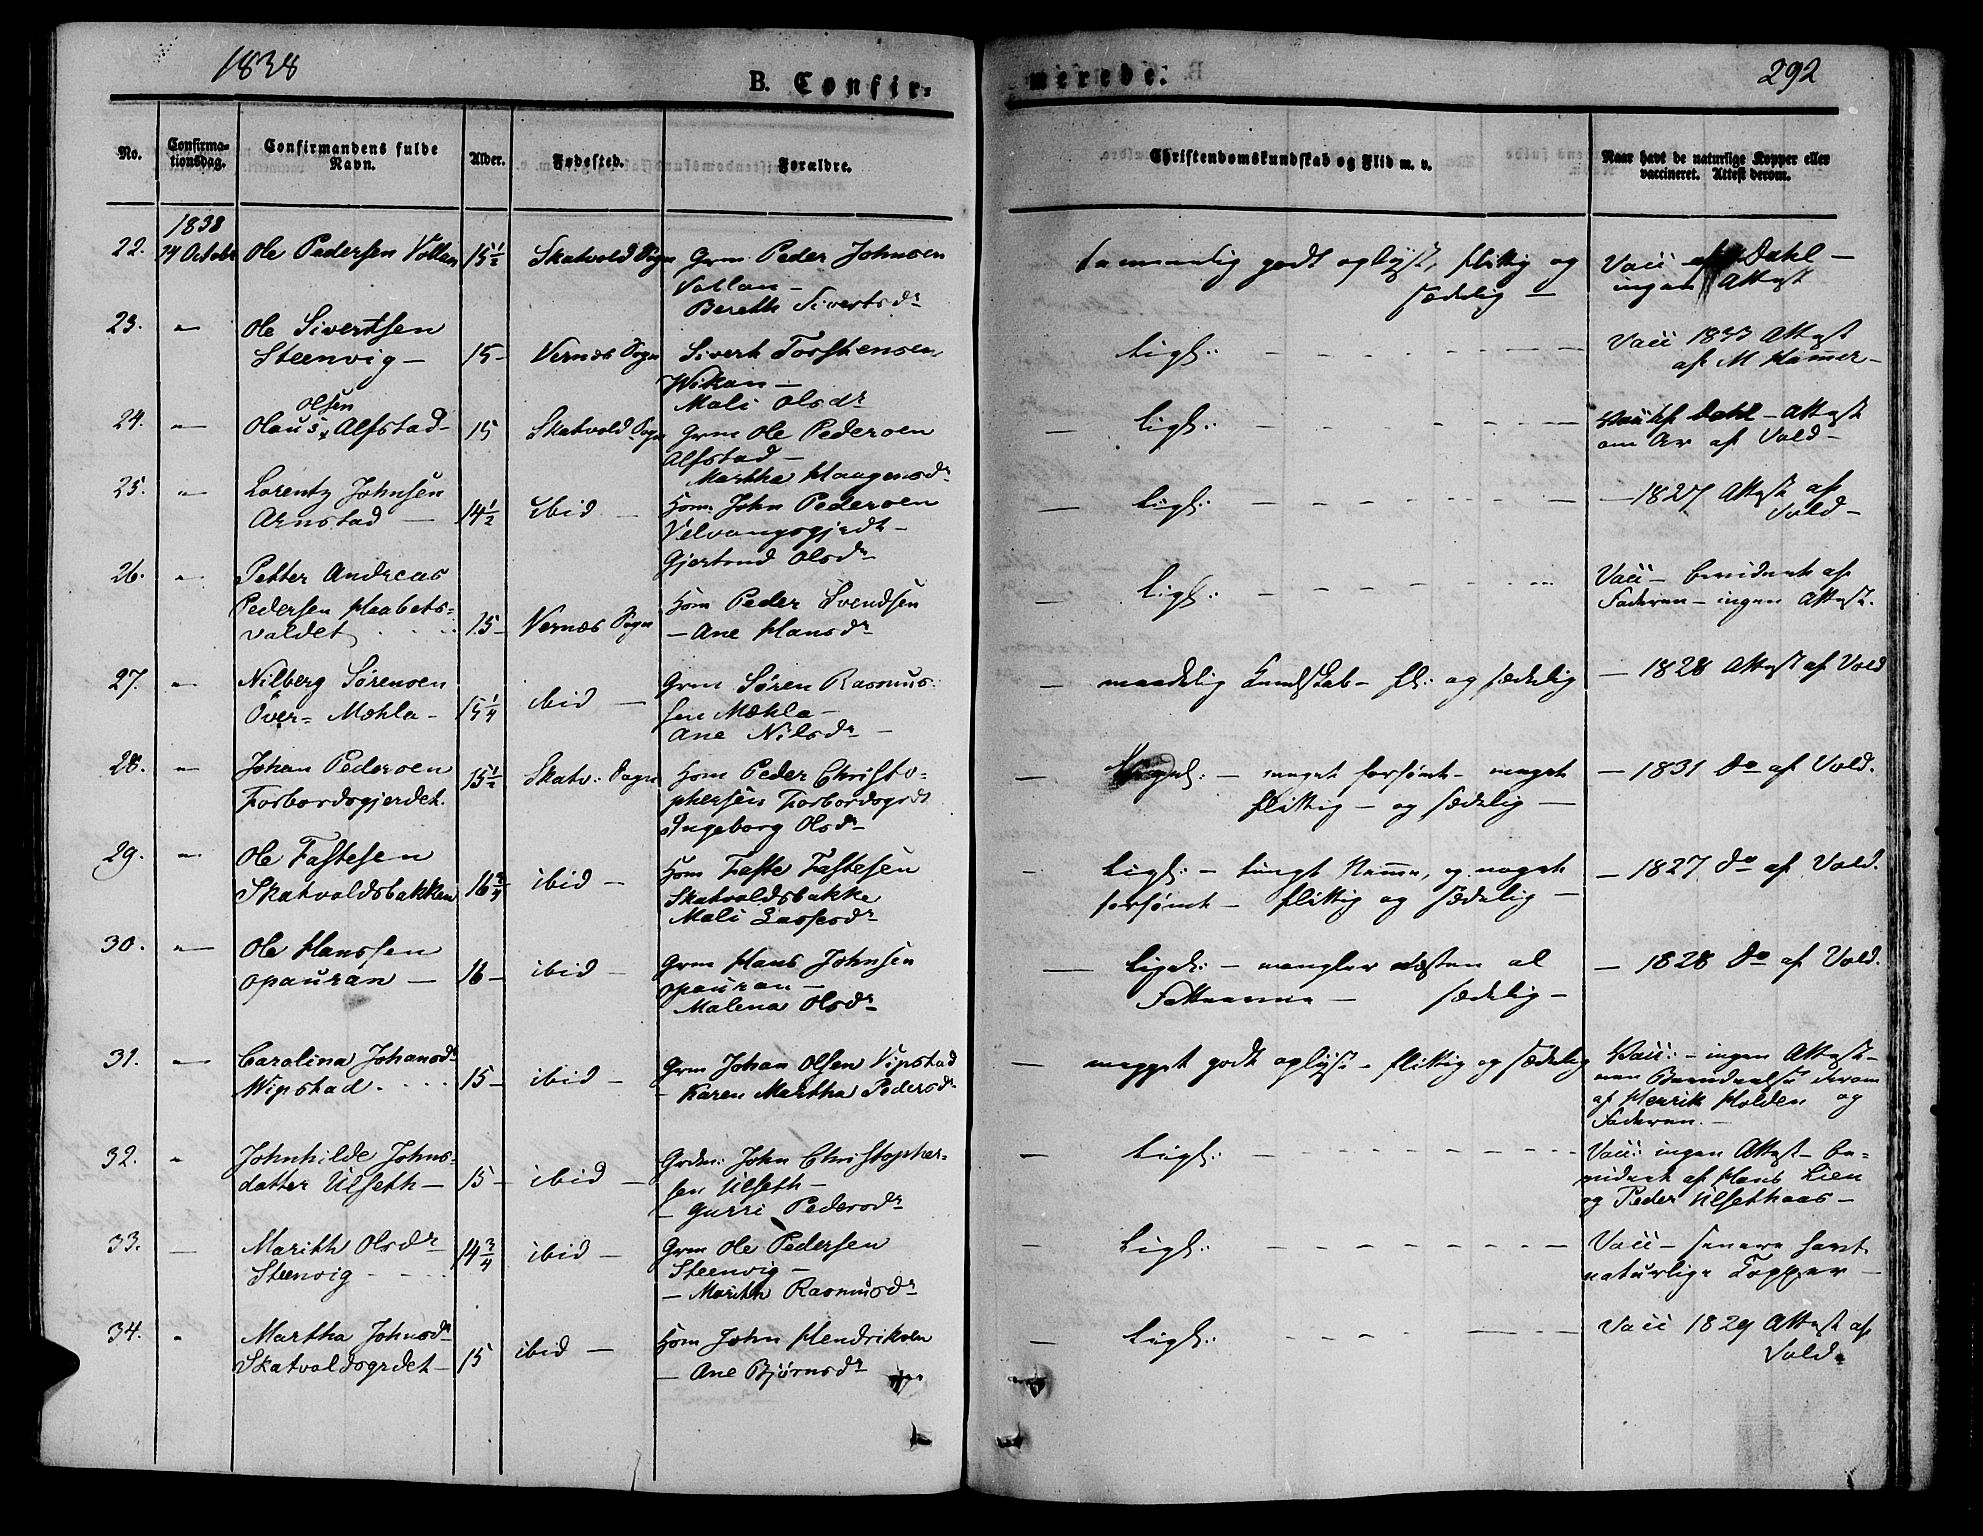 1838
B. Confir-
merede.
292
No.
Confirma-
tionsdag.
Confirmandens fulde
Navn.
Alder.
Fødested.
Forældre.
Christendomskundskab og Flid m. v.
Naar havt de naturlige Kopper eller
vaccineret. Attest derom.
1838
22. Octobr Ole Pedersen Vollan 15½ Skatvold Sogn Grm Peder Johnsen
Vollan –
Bereth Sivertsdr
temmelig godt oplyst, flittig og
sædelig –
Vacc af Dahl –
ingen Attest
23. " Ole Sivertsen
Steenvig – 15 – Vernæs Sogn Sivert Torstensen
Wikan –
Mali Olsdr
Ligs:
Vacc 1833 Attest
af M Hamer –
24. " Olaus Olsen Alfstad – 15 Skatvold Sogn Grm Ole Pedersen
Alfstad –
Martha Haagensdr
– Ligs:
Vacc af Dahl – Attest
om Ar af Vold –
25. " Lorentz Johnsen
Arnstad – 14½ ibid – Hom: John Pedersen
Velvangsgjerdt –
Gjertrud Olsdr
– Ligs:
– 1827 Attest af
Vold –
26. " Petter Andreas
Pedersen Haabets-
valdet 15 – Vernæs Sogn Hom Peder Svendsen
– Ane Hansdr
– Ligs:
Vacc – bevidnet af
Faderen – ingen Attest.
27. " Nilberg Sørensen
Över- Mæhla – 15¼ ibid – Grm Søren Rasmus-
sen Mæhla –
Ane Nilsdr –
– maadelig Kundskab – fl: og sædelig
– 1828 Attest af Vold
28. " Johan Pedersen
Forbordsgjerdet. 15½ Skatv: Sogn Hom Peder Christo-
phersen Forbordsgrdt
Ingeborg Olsdr –
– – meget forsømt – meget
flittig – og sædelig –
– 1831 do af Vold.
29. " Ole Fastesen
Skatvoldsbakken 16¾ ibid – Hom Faste Fastesen
Skatvoldsbakke
Mali Lassesdr
– Ligs: – tungt Nemme, og noget
forsømt – flittig og sædelig –
– 1827 do af Vold.
30. " Ole Hanssen
Opauran – 16 – ibid – Grm Hans Johnsen
Opauran –
Malena Olsdr
– Ligel: – mangler næsten al
Fatteevne – sædelig –
– 1828 do af Vold.
31. Carolina Johansdr
Wipstad 15 – ibid – Grm Johan Olsen Vipstad
– Karen Martha Pedersdr
– megget godt oplyst – flittig og sædelig
Vacc: – ingen Attest –
men Bevidnelse derom
af Henrik Holden og
Faderen. –
32. " Johnhilde Johns-
datter Ulseth – 15 – ibid – Grdm: John Christopher-
sen Ulseth –
– Gurri Pedersdr
– Ligs:
Vacc: ingen Attest – be-
vidnet af Hans Lien
og Peder Ulsethaas –
33. – Marith Olsdr
Steenvig 14¾ ibid – Grm Ole Pedersen
Steenvig –
– Marith Rasmusdr
– Ligs:
Vacc – senere havt
naturlige Kopper –
34. " Martha Johnsdr
Skatvoldsgrdet – 15 ibid – Hom John Hendriksen
– Ane Bjørnsdr
– Ligs:
Vacc 1829 Attest af
Vold